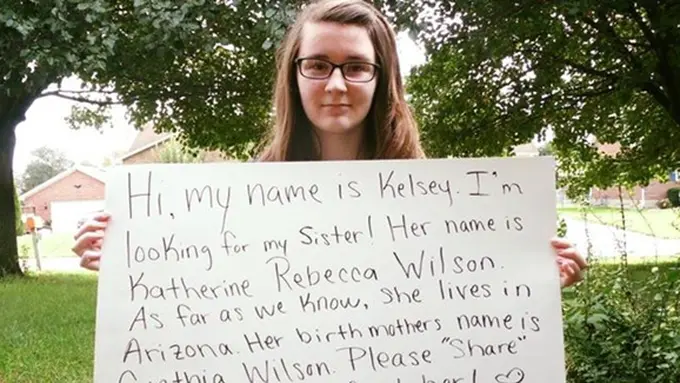 Hi, my name is Kelsey. I'm
looking for my Sister! Her name is
Katherine Rebecca Wilson.
As far as we know, she lives in
Arizona. Her birthmothers name is
Cynthia Wilson. Please "Share"